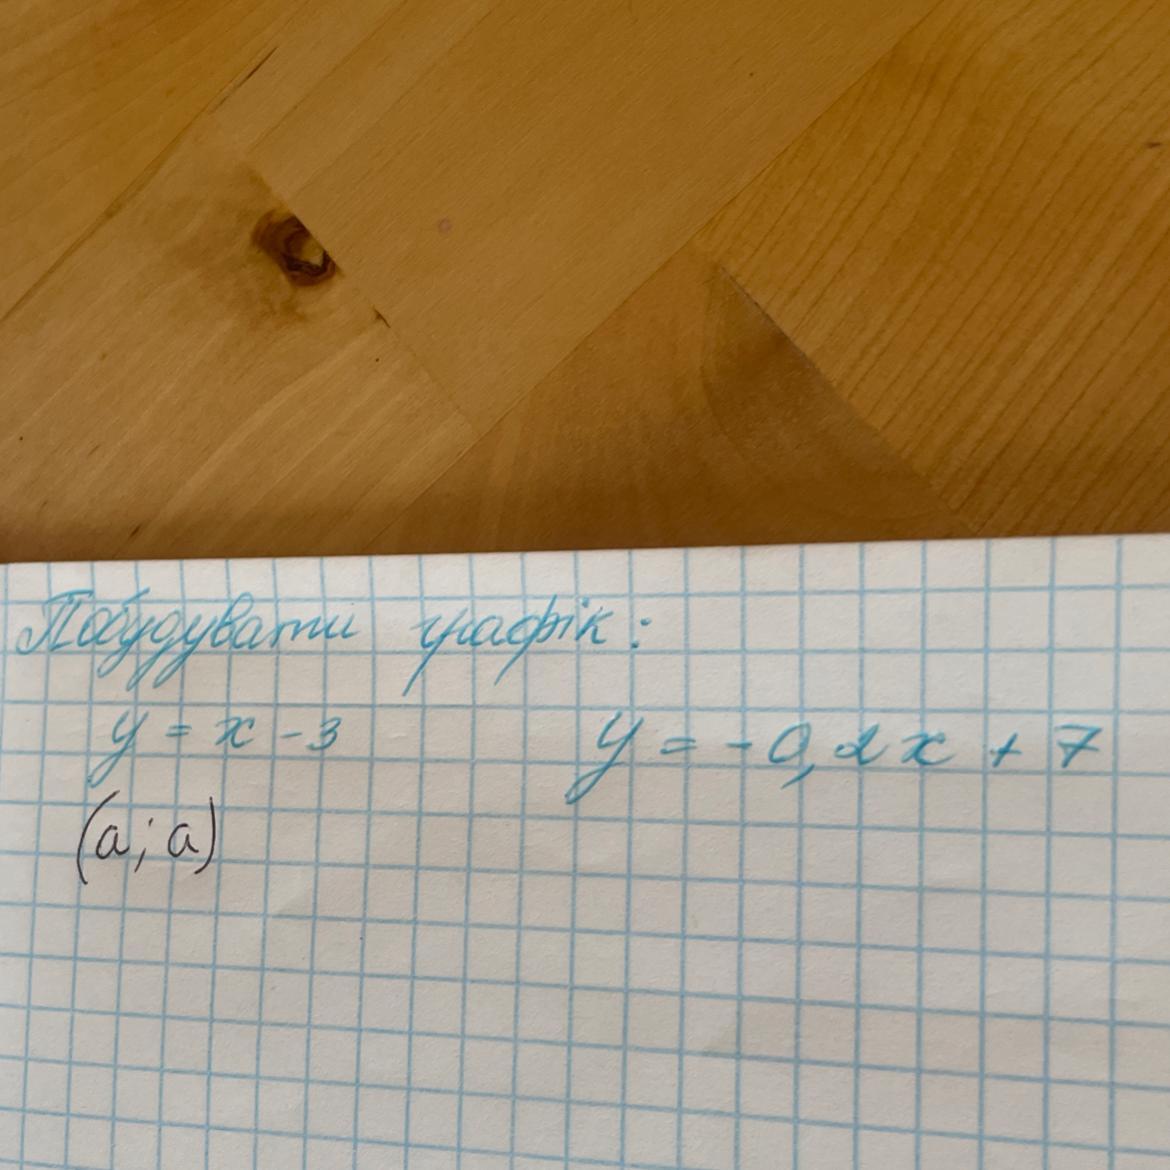 Побудувати графік:
y = x - 3    y = -0,2x + 7
(a; a)